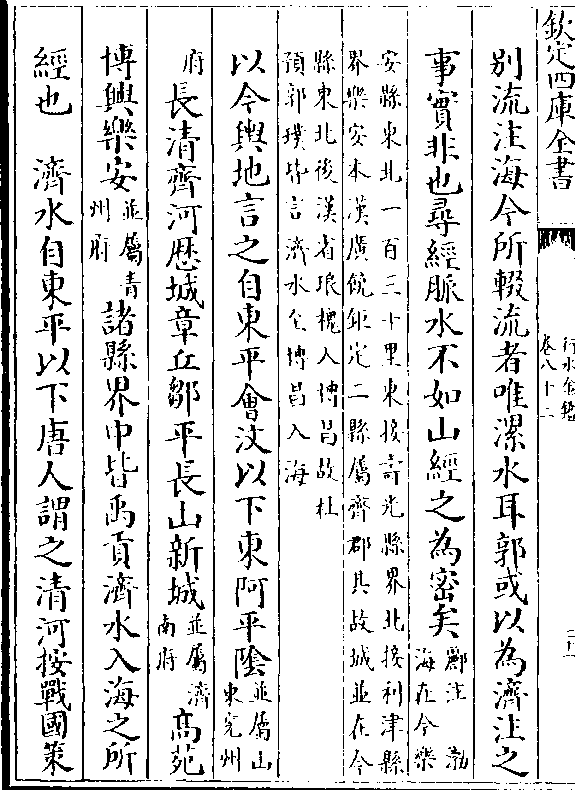 欽定四庫全書
行水金鑑
卷八十二
別流注海今所輟流者唯漯水耳郭或以為濟注之
事實非也尋經脈水不如山經之為密矣酈注渤海在今樂
安縣東北一百三十里東接壽光縣界北接利津縣
界樂安本漢廣饒鉅定二縣屬齊郡其故城並在今
縣東北後漢省琅槐入博昌故杜
預郭璞皆言濟水至博昌入海
以今輿地言之自東平會汶以下東阿平陰並屬山東兖州
府長清齊河歴城章丘鄒平長山新城並屬濟南府髙苑
博興樂安並屬青州府諸縣界中皆禹貢濟水入海之所
經也　濟水自東平以下唐人謂之清河按戰國策